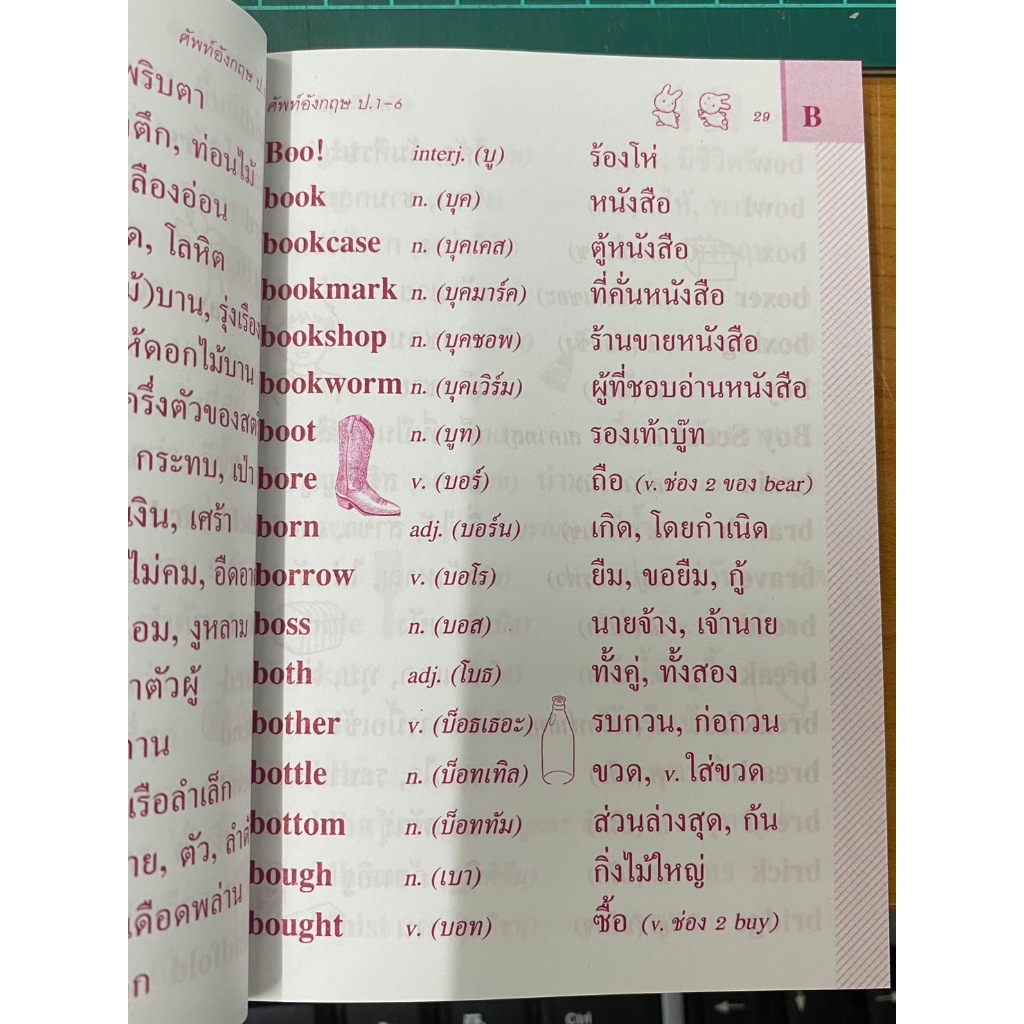 ศัพท์อังกฤษ ป.
พริบตา
ตึก, ท่อนไม้
เหลืองอ่อน
โลหิต
บาน, รุ่งเรือง
ดอกไม้บาน
ครึ่งตัวของสตรี
กระทบ, เป่า
เงิน, เศร้า
ไม่คม, อืดอาด
งูหลาม
ตัวผู้
เรือลำเล็ก
ตัว, ลำตัว
เดือดพล่าน
ศัพท์อังกฤษ ป.1-6 29 B
Boo! interj. (บู) ร้องโห่
book n. (บุค) หนังสือ
bookcase n. (บุคเคส) ตู้หนังสือ
bookmark n. (บุคมาร์ค) ที่คั่นหนังสือ
bookshop n. (บุคชอพ) ร้านขายหนังสือ
bookworm n. (บุคเวิร์ม) ผู้ที่ชอบอ่านหนังสือ
boot n. (บูท) รองเท้าบู๊ท
bore v. (บอร์) ถือ (v. ช่อง 2 ของ bear)
born adj. (บอร์น) เกิด, โดยกำเนิด
borrow v. (บอโร) ยืม, ขอยืม, กู้
boss n. (บอส) นายจ้าง, เจ้านาย
both adj. (โบธ) ทั้งคู่, ทั้งสอง
bother v. (บ็อธเธอะ) รบกวน, ก่อกวน
bottle n. (บ็อทเทิล) ขวด, v. ใส่ขวด
bottom n. (บ็อททัม) ส่วนล่างสุด, ก้น
bough n. (เบา) กิ่งไม้ใหญ่
bought v. (บอท) ซื้อ (v. ช่อง 2 buy)
Ctrl